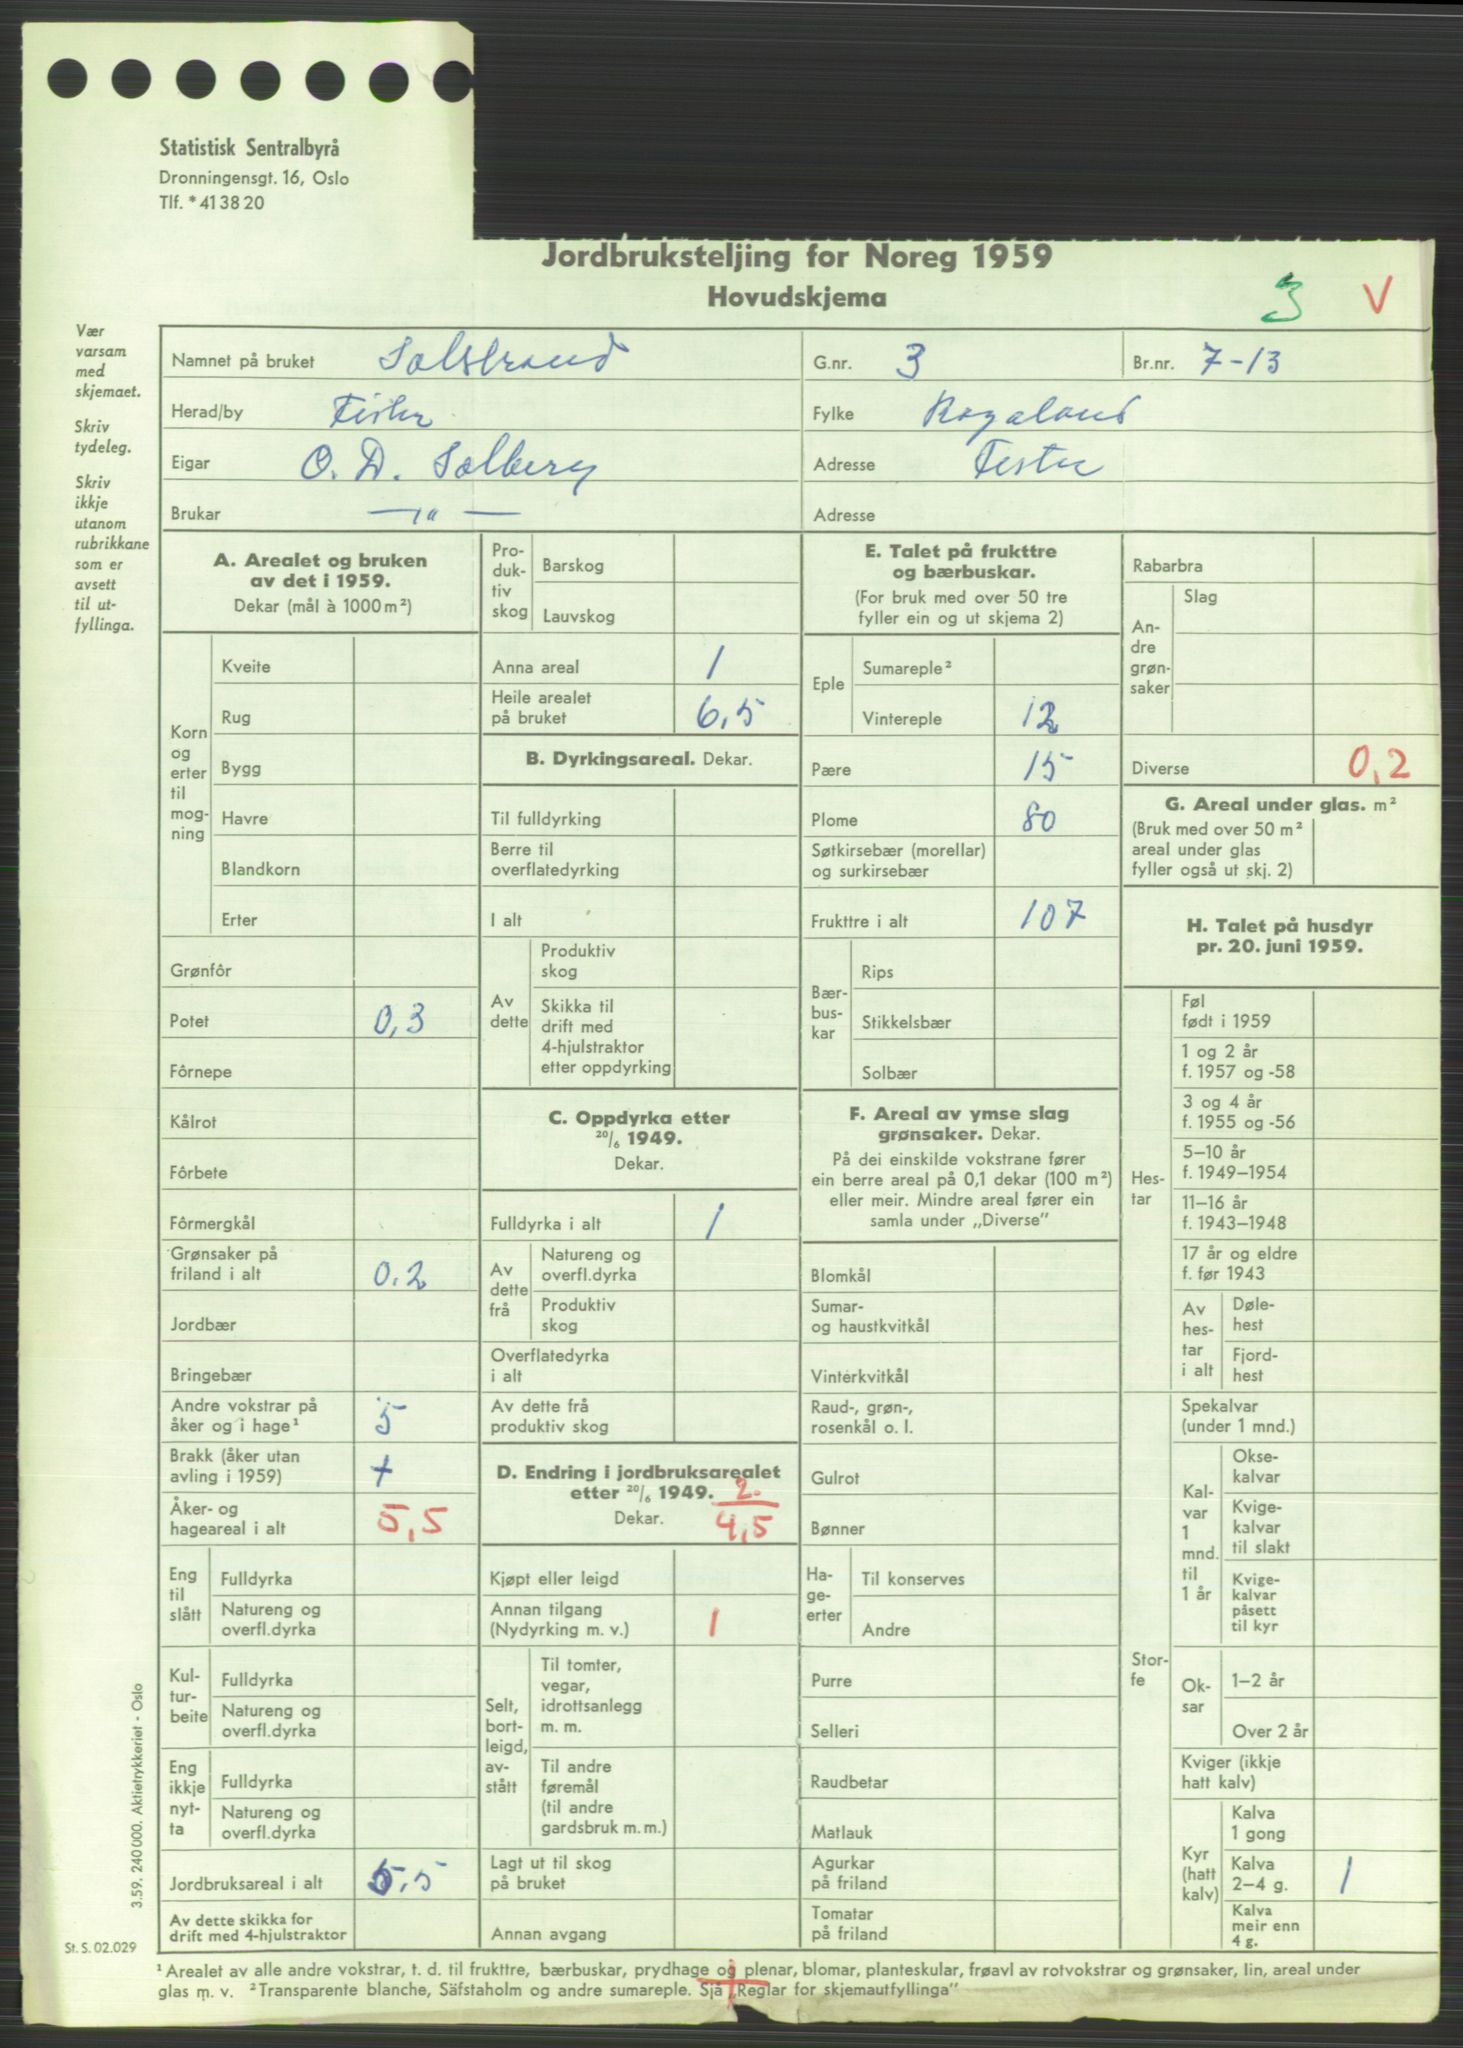 Statistisk Sentralbyrå
Dronningensgt. 16, Oslo
Tlf. * 41 38 20
Jordbruksteljing for Noreg 1959
Hovudskjema
3 V
Vær
varsam
med
skjemaet.
Skriv
tydeleg.
Skriv
ikkje
utanom
rubrikkane
som er
avsett
til ut-
fyllinga.
Namnet på bruket Solstrand G.nr. 3 Br.nr. 7-13
Herad/by Fister Fylke Rogaland
Eigar O. D. Solberg Adresse Fister
Brukar —"— Adresse
A. Arealet og bruken
av det i 1959.
Dekar (mål à 1000 m²)
Korn
og
erter
til
mog-
ning
Kveite
Rug
Bygg
Havre
Blandkorn
Erter
Grønfôr
Potet 0,3
Fôrnepe
Kålrot
Fôrbete
Fôrmergkål
Grønsaker på
friland i alt 0.2
Jordbær
Bringebær
Andre vokstrar på
åker og i hage¹ 5
Brakk (åker utan
avling i 1959) +
Åker- og
hageareal i alt 5,5
Eng
til
slått
Fulldyrka
Natureng og
overfl.dyrka
Kul-
tur-
beite
Fulldyrka
Natureng og
overfl.dyrka
Eng
ikkje
nyt-
ta
Fulldyrka
Natureng og
overfl.dyrka
Jordbruksareal i alt 5,5
Av dette skikka for
drift med 4-hjulstraktor
Pro-
duk-
tiv
skog
Barskog
Lauvskog
Anna areal 1
Heile arealet
på bruket 6,5
B. Dyrkingsareal. Dekar.
Til fulldyrking
Berre til
overflatedyrking
I alt
Av
dette
Produktiv
skog
Skikka til
drift med
4-hjulstraktor
etter oppdyrking
C. Oppdyrka etter
20/6 1949.
Dekar.
Fulldyrka i alt 1
Av
dette
frå
Natureng og
overfl.dyrka
Produktiv
skog
Overflatedyrka
i alt
Av dette frå
produktiv skog
D. Endring i jordbruksarealet
etter 20/6 1949. 2.
Dekar. 4,5
Kjøpt eller leigd
Annan tilgang
(Nydyrking m. v.) 1
Selt,
bort-
leigd,
av-
stått
Til tomter,
vegar,
idrottsanlegg
m. m.
Til andre
føremål
(til andre
gardsbruk m. m.)
Lagt ut til skog
på bruket
Annan avgang
E. Talet på frukttre
og bærbuskar.
(For bruk med over 50 tre
fyller ein og ut skjema 2)
Eple
Sumareple²
Vintereple 12
Pære 15
Plome 80
Søtkirsebær (morellar)
og surkirsebær
Frukttre i alt 107
Bær-
bus-
kar
Rips
Stikkelsbær
Solbær
F. Areal av ymse slag
grønsaker. Dekar.
På dei einskilde vokstrane fører
ein berre areal på 0,1 dekar (100 m²)
eller meir. Mindre areal fører ein
samla under „Diverse”
Blomkål
Sumar-
og haustkvitkål
Vinterkvitkål
Raud-, grøn-,
rosenkål o. l.
Gulrot
Bønner
Ha-
ge-
erter
Til konserves
Andre
Purre
Selleri
Raudbetar
Matlauk
Agurkar
på friland
Tomatar
på friland
Rabarbra
An-
dre
grøn-
saker
Slag
Diverse 0,2
G. Areal under glas. m²
(Bruk med over 50 m²
areal under glas
fyller også ut skj. 2)
H. Talet på husdyr
pr. 20. juni 1959.
Hes-
tar
Føl
født i 1959
1 og 2 år
f. 1957 og -58
3 og 4 år
f. 1955 og -56
5–10 år
f. 1949–1954
11–16 år
f. 1943–1948
17 år og eldre
f. før 1943
Av
hes-
tar
i alt
Døle-
hest
Fjord-
hest
Stor-
fe
Spekalvar
(under 1 mnd.)
Kal-
var
1
mnd.
til
1 år
Okse-
kalvar
Kvige-
kalvar
til slakt
Kvige-
kalvar
påsett
til kyr
Ok-
sar
1–2 år
Over 2 år
Kviger (ikkje
hatt kalv)
Kyr
(hatt
kalv)
Kalva
1 gong
Kalva
2–4 g. 1
Kalva
meir enn
4 g.
3.59. 240 000. Aktietrykkeriet - Oslo
St. S. 02.029
¹ Arealet av alle andre vokstrar, t. d. til frukttre, bærbuskar, prydhage og plenar, blomar, planteskular, frøavl av rotvokstrar og grønsaker, lin, areal under
glas m. v. ² Transparente blanche, Säfstaholm og andre sumareple. Sjå „Reglar for skjemautfyllinga”